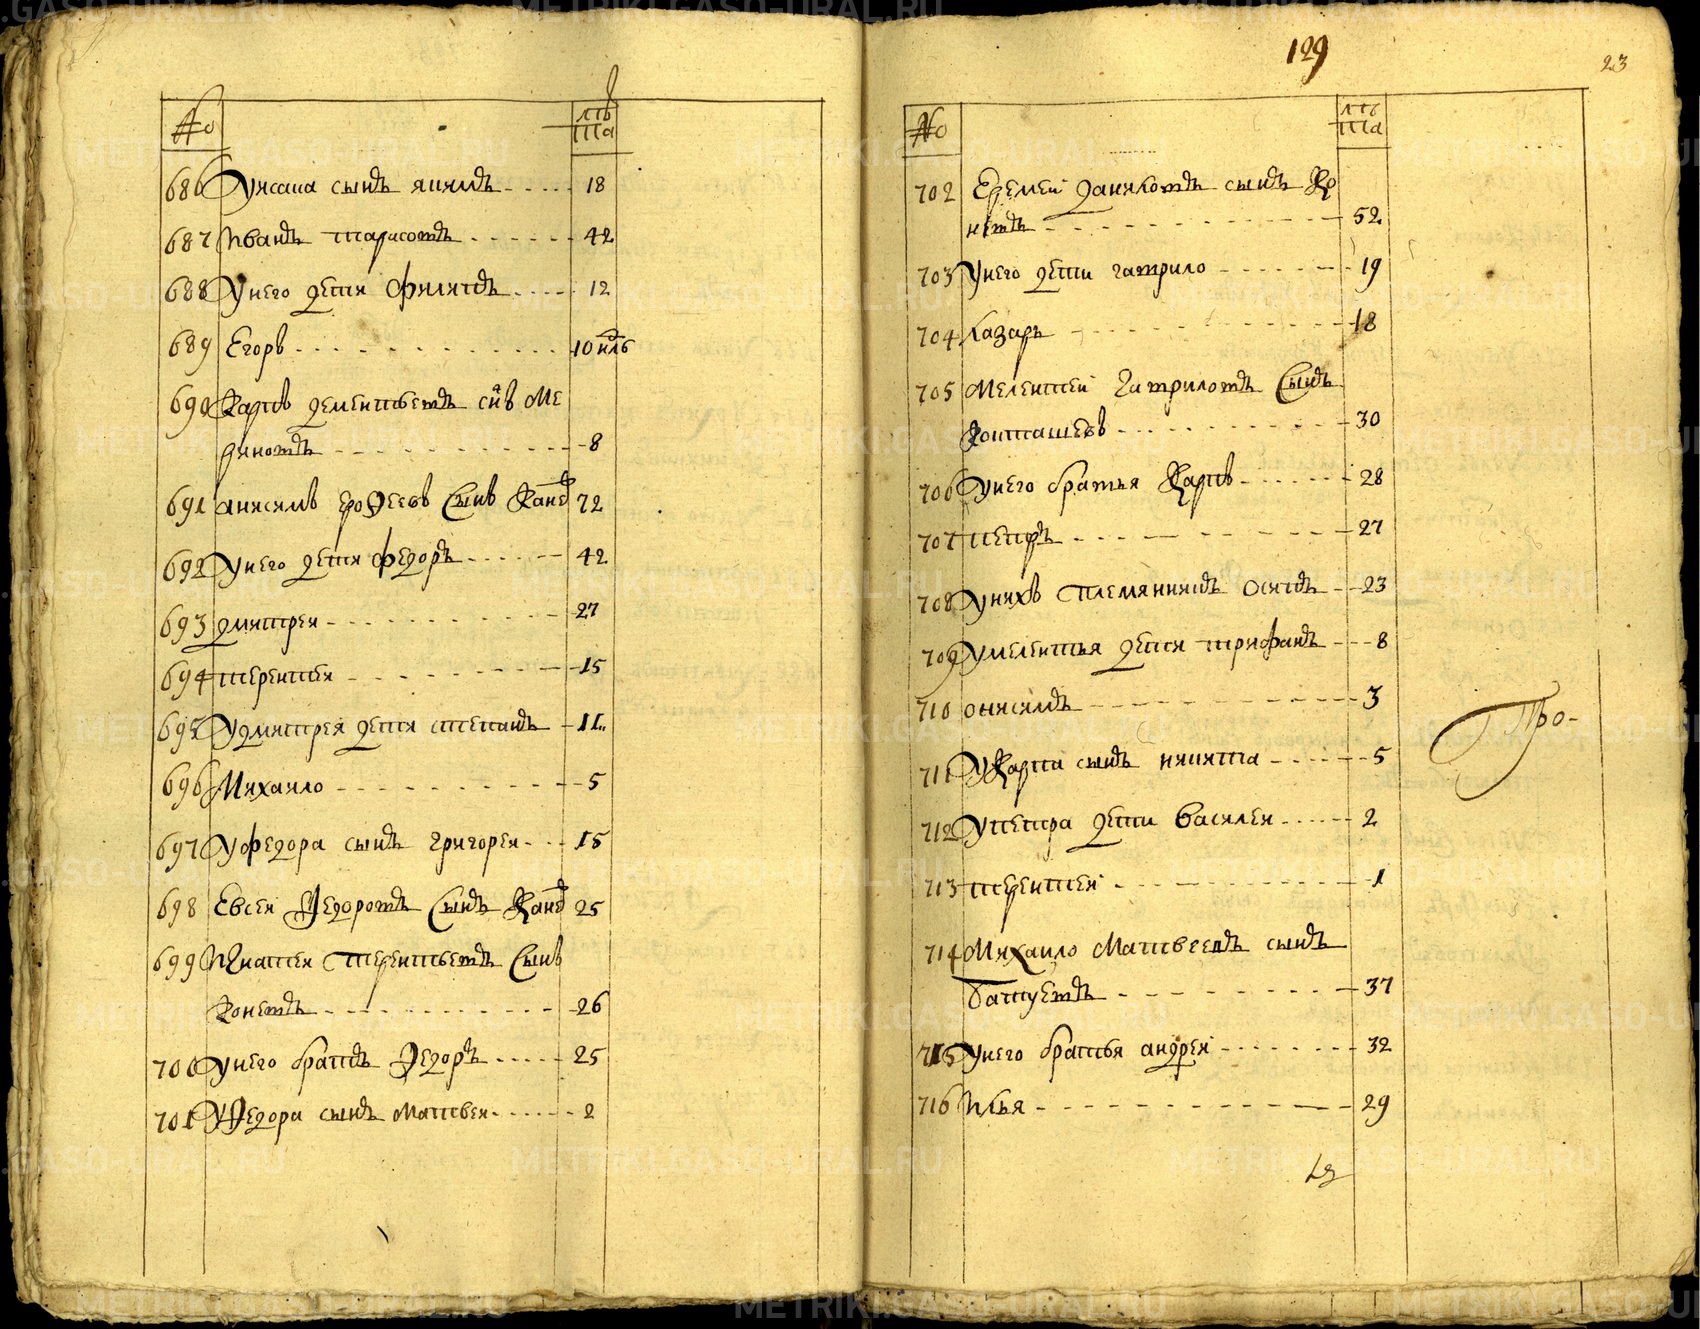 No
лѣта
686 У исаака сынъ якимъ 18
687 Иванъ тарасовъ 42
688 У него дети филипъ 12
689 Егоръ 10 ндль
690 Карпъ дементьевъ снъ Ме
риновъ 8
691 анисимъ ерофеевъ Сынъ Канев 72
692 У него дети федоръ 42
693 дмитреи 27
694 терентеи 15
695 У дмитрея дети степанъ 11
696 Михаило 5
697 У федора сынъ григореи 15
698 Евсеи Федоровъ Сынъ Канев 25
699 Игнатеи Терентьевъ Сынъ
Коневъ 26
700 У него братъ Федоръ 25
701 У Федора сынъ матвеи 2
129
23
No
лѣта
702 Еремеи даниловъ сынъ Ко
невъ 52
703 У него дети гаврило 19
704 Лазарь 18
705 Мелентеи Гавриловъ Сынъ
Конташевъ 30
706 У него братья Карпъ 28
707 петръ 27
708 У нихъ племянникъ осипъ 23
709 У мелентья дети трифанъ 8
710 онисимъ 3
711 У Карпа сынъ никита 5
712 У петра дети василеи 2
713 терентеи 1
714 Михаило Матвеевъ сынъ
батуевъ 37
715 У него братья андреи 32
716 Илья 29
Про-